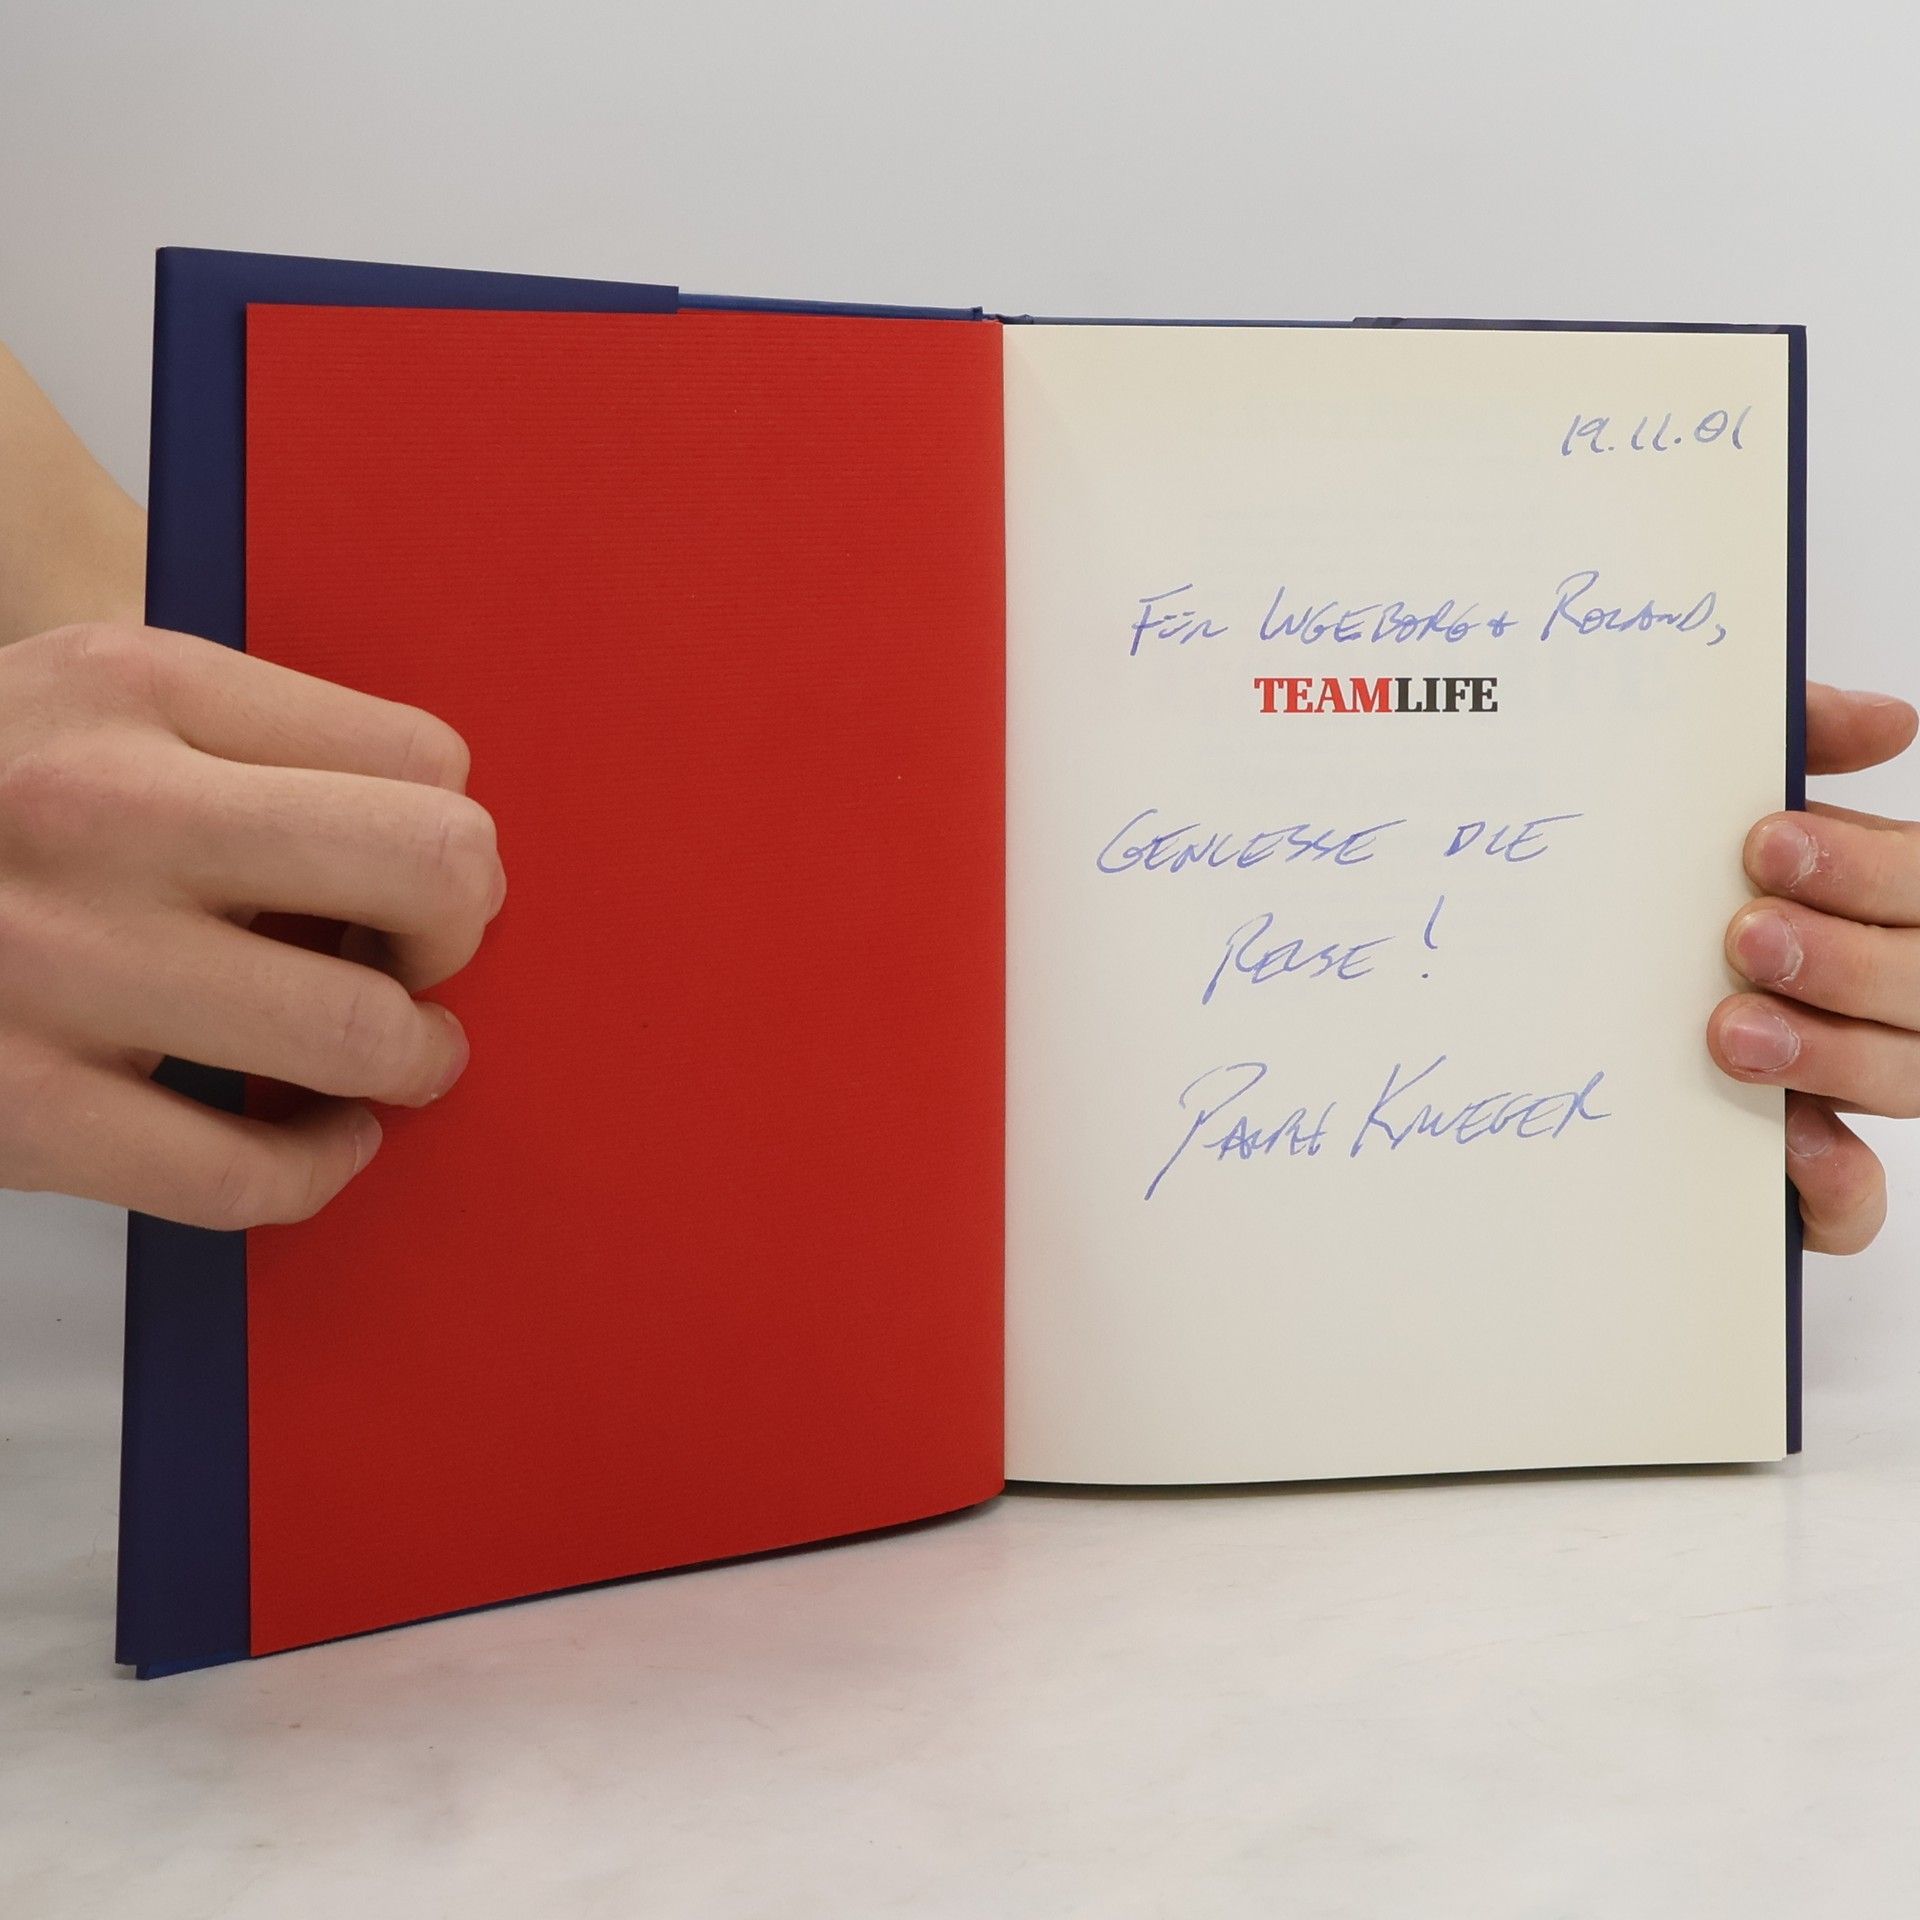 19.11.01
FÜR INGEBORG + ROLAND,
TEAMLIFE
GENIESSE DIE
REISE!
KRUEGER